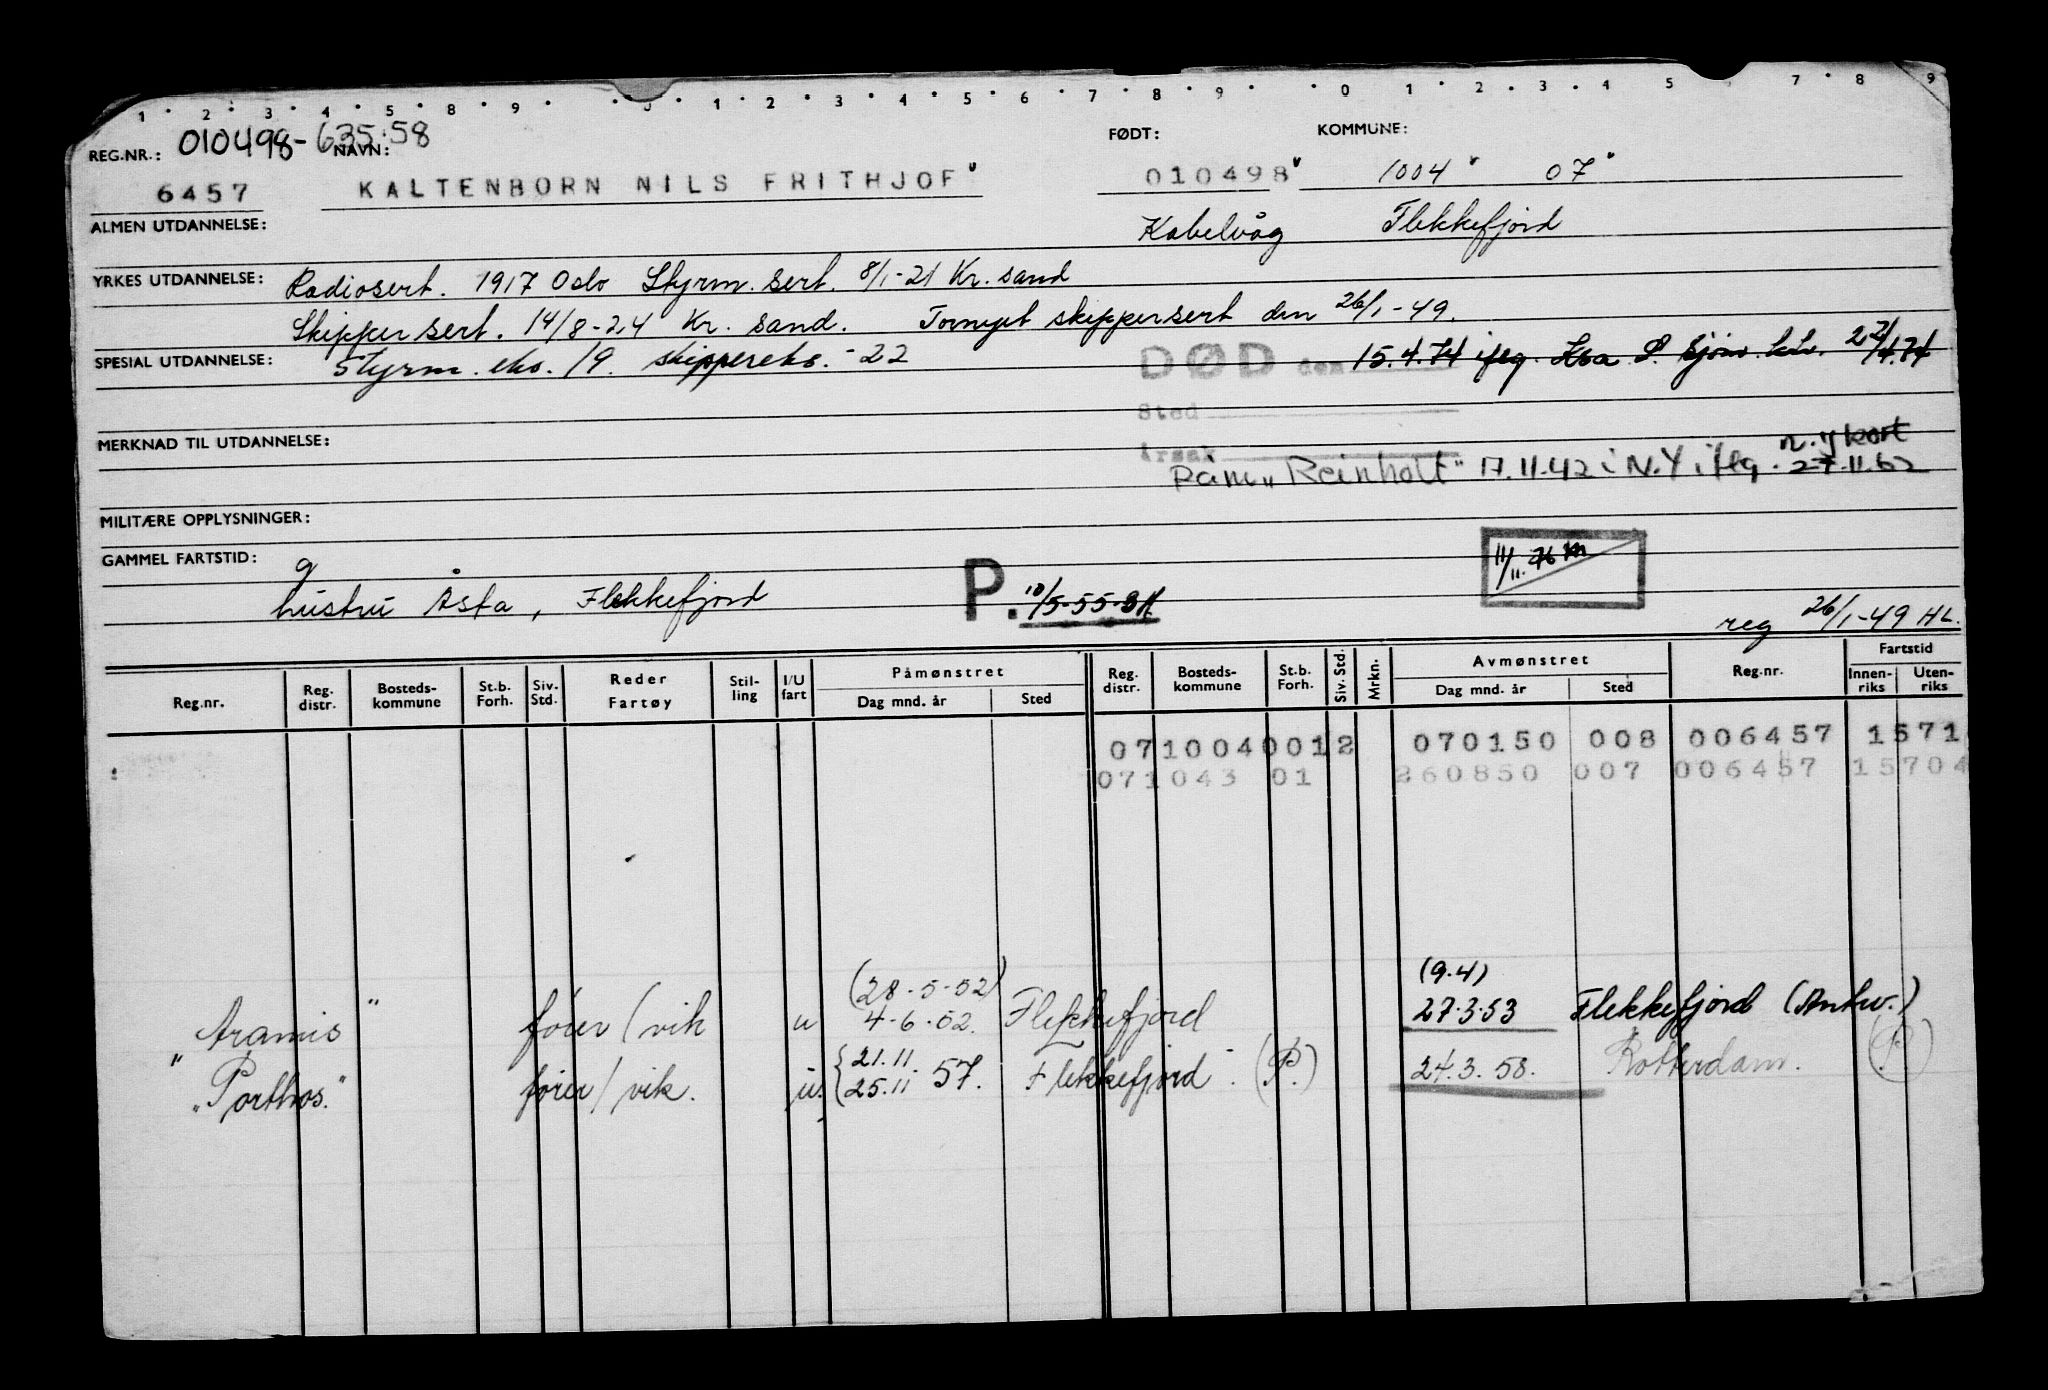 1 2 3 4 5 8 9 0 1 2 3 4 5 6 7 8 9 0 1 2 3 4 5 7 8 9
REG.NR.: 010498-635.58 NAVN: FØDT: KOMMUNE:
6457 KALTENBORN NILS FRITHJOF 010498 1004 07
ALMEN UTDANNELSE: Kabelvåg Flekkefjord
YRKES UTDANNELSE: Radiosert. 1917 Oslo Styrm. sert. 8/1-21 Kr. sand
Skippersert. 14/8-24 Kr. sand. Fornyet skippersert den 26/1-49.
SPESIAL UTDANNELSE: Styrm. eks. 19. skippereks. -22 DØD den 15.4.74 iflg. S. Sjøm. 22/4.74
Sted
MERKNAD TIL UTDANNELSE: Årsak
Påm "Reinholt" 17.11.42 i N.Y iflg. N.Y kort 27.11.62
MILITÆRE OPPLYSNINGER:
GAMMEL FARTSTID: g 11/11.76
hustru Åsta, Flekkefjord P. 10/5-55
reg 26/1-49 HL.
Reg.nr. Reg. distr. Bosteds-kommune St.b. Forh. Siv. Std. Reder Fartøy Stil-ling I/U fart Påmønstret Dag mnd. år Sted Reg. distr. Bosteds-kommune St.b. Forh. Siv. Std. Mrkn. Avmønstret Dag mnd. år Sted Reg.nr. Fartstid Innen-riks Uten-riks
07 1004 001 2 070150 008 006457 1571
071043 01 260850 007 006457 15704
(28-5-52) (9.4)
"Aramis" fører/vik u 4-6-52. Flekkefjord 27.3.53 Flekkefjord (Antw.)
"Porthos." fører/vik. u. {21.11. 25.11 57. Flekkefjord. (P.) 24.3.58. Rotterdam. (P)